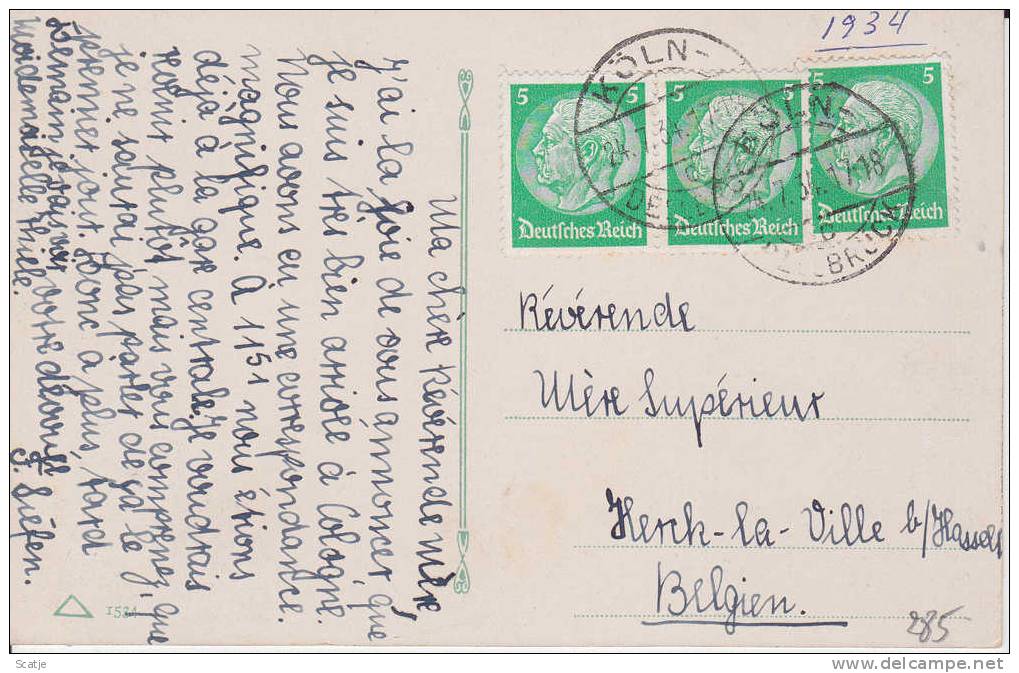 1934
5 5
5
5
Deutsches Reich
Deutsches Reich
Deutsches Reich
KÖLN-
KÖLN-
Révérende
Mère Supérieur
Herck-la-Ville b/Hasselt
Belgien.
285
Ma chère Révérende mère
J'ai la joie de vous annoncer que
je suis très bien arrivée à Cologne.
Nous avons eu une correspondance
magnifique. À 1151 nous étions
déjà à la gare centrale. Je voudrais
plutôt mais vous comprenez, que
je ne saurai pas parler de ça le
premier jour. Donc à plus tard
Demain je vais voir
votre dévouée
Mademoiselle Thiele.
J. Siefen.
1534
Scatje
www.delcampe.net